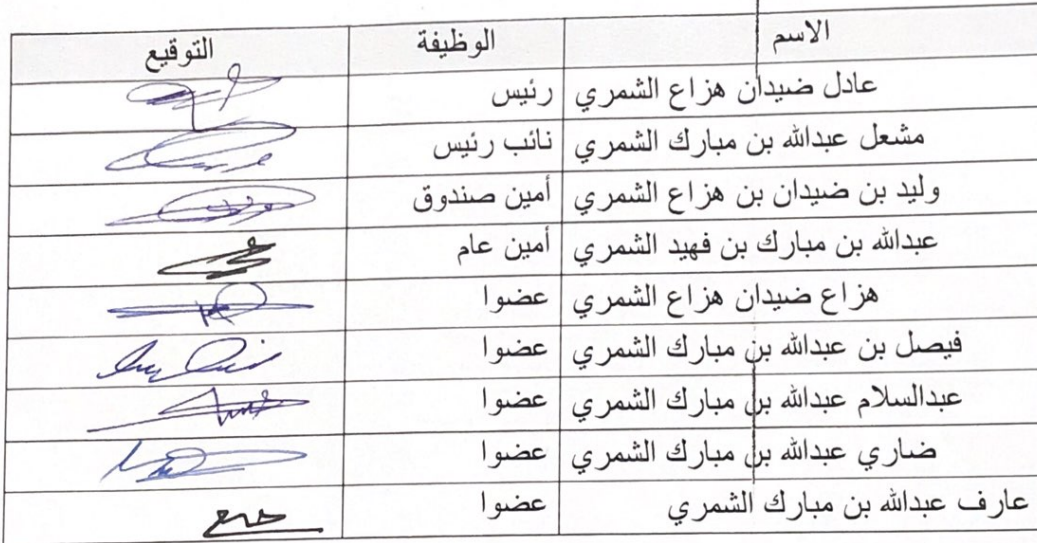 الاسم الوظيفة التوقيع
عادل ضيدان هزاع الشمري رئيس
مشعل عبدالله بن مبارك الشمري نائب رئيس
وليد بن ضيدان بن هزاع الشمري أمين صندوق
عبدالله بن مبارك بن فهيد الشمري أمين عام
هزاع ضيدان هزاع الشمري عضوا
فيصل بن عبدالله بن مبارك الشمري عضوا
عبدالسلام عبدالله بن مبارك الشمري عضوا
ضاري عبدالله بن مبارك الشمري عضوا
عارف عبدالله بن مبارك الشمري عضوا